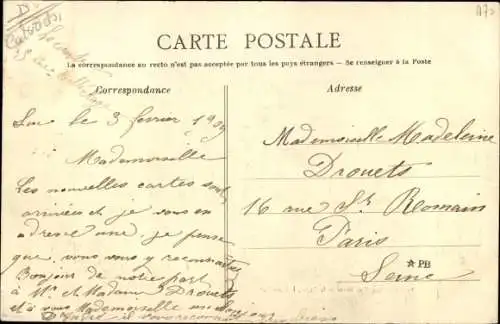 D
Calvados
A73
CARTE POSTALE
La correspondance au recto n'est pas acceptée par tous les pays étrangers — Se renseigner à la Poste
Correspondance
Luc le 3 février 1909
Mademoiselle
Les nouvelles cartes sont
arrivées et je vous en
adresse une, je pense
que, vous vous y reconnaîtrez
Bonjour de notre part
à Mr et Madame Drouets
et à vous Mademoiselle un bonjour
Adresse
Mademoiselle Madeleine
Drouets
16 rue St Romain
Paris
Seine
☆ PB